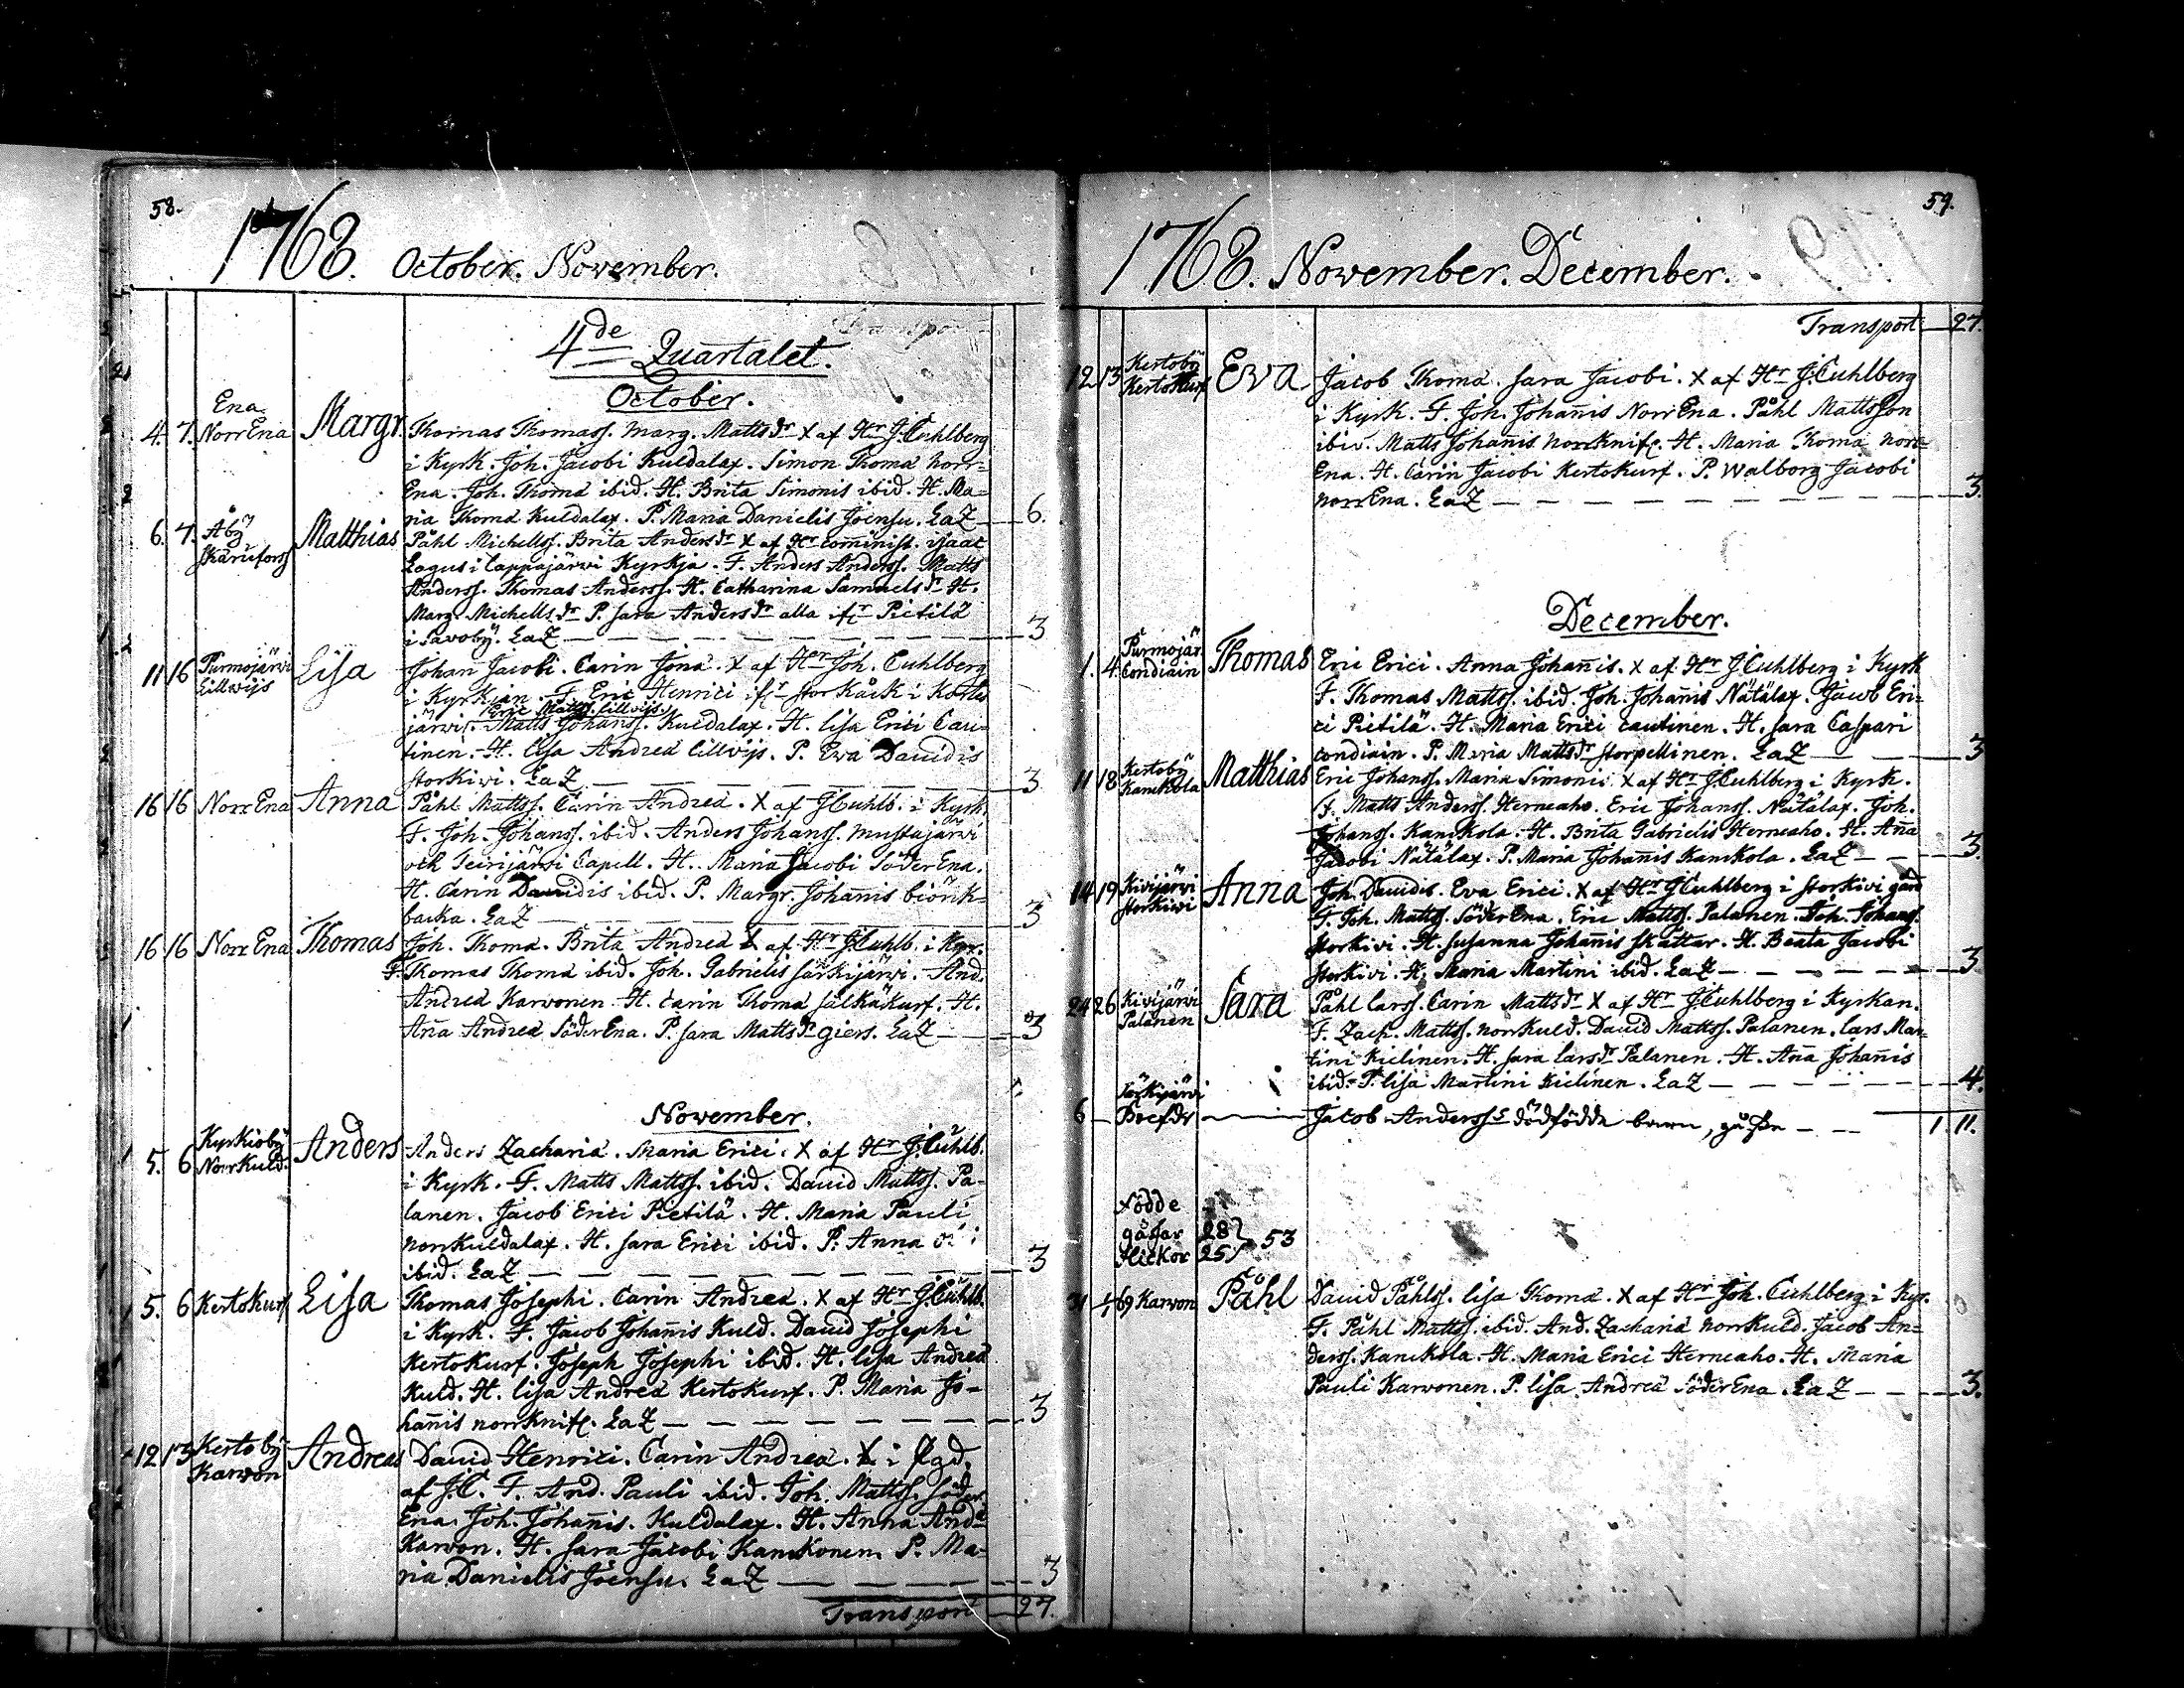 58.
1768. October. November.
4de Quartalet.
October.
4. 7. Ena NorrEna Margr. Thomas Thomass. Marg. Mattsdr X af Hr J. Cuhlberg
i Kyrk. Joh. Jacobi Kuldalax. Simon Thomæ Norr=
Ena. Joh. Thomæ ibid. H. Brita Simonis ibid. H. Ma=
ria Thomæ Kuldalax. P. Maria Danielis Joensu. LaZ — 6.
6. 7. Åby Matthias Påhl Michellss. Brita Andersdr X af Hr Comminist. Isaac
Lagus i Lappajärvi Kyrkja. F. Anders Anderss. Matts
Anderss. Thomas Anderss. H. Catharina Samuelsdr H.
Marg. Michellsdr P. Sara Andersdr alla ifr Pietilä
i Savoby. LaZ — 3
11 16 Purmojärvi Lillvijs Lisa Johan Jacobi. Carin Jonæ. X af Hr Joh. Cuhlberg
i Kyrkian. F. Eric Henrici ifr Storkåck i Korte
Eric Matts. Lillvijs.
järwi. Matts Johanss. Kuldalax. H. Lisa Erici Cau=
tinen. H. Lisa Andreæ Lillvijs. P. Eva Davidis
Storkivi. LaZ — 3
16 16 NorrEna Anna Påhl Mattss. Carin Andreæ. X af J Cuhlb. i Kyrk.
F. Joh. Johanss. ibid. Anders Johanss. Mustajärvi
och Teirijärvi Capell. H. Maria Jacobi SöderEna.
H. Carin Davidis ibid. P. Margr. Johannis Biörk=
backa. LaZ — 3
16 16 NorrEna Thomas Joh. Thomæ. Brita Andreæ X af Hr J. Cuhlb. i Kyr.
F. Thomas Thomæ ibid. Joh. Gabrielis Särkijärvi. And.
Andreæ Karvonen. H. Carin Thomæ Sälkäkurf. H.
Anna Andreæ SöderEna. P. Sara Mattsdr Giers. LaZ — 3
November.
5. 6 Kyrkioby NorrKuld. Anders Anders Zachariæ. Maria Erici. X af Hr J. Cuhlb.
i Kyrk. F. Matts Mattss. ibid. David Mattss. Pa=
lanen. Jacob Erici Pietilä. H. Maria Pauli
Norrkuldalax. H. Sara Erici ibid. P. Anna
ibid. LaZ — 3
5. 6 Kertokurf Lisa Thomas Josephi. Carin Andreæ. X af Hr J. Cuhlb.
i Kyrk. F. Jacob Johannis Kuld. David Josephi
Kertokurf. Joseph Josephi ibid. H. Lisa Andreæ
Kuld. H. Lisa Andreæ Kertokurf. P. Maria Jo=
hannis Norrknif. LaZ — 3
12 13 Kertoby Karvon Andreas David Henrici. Carin Andreæ. X i Pgd.
af J.C. F. And. Pauli ibid. Joh. Mattss. Söder
Ena. Joh. Johannis. Kuldalax. H. Anna Andæ
Karvon. H. Sara Jacobi Kanckonen. P. Ma=
ria Danielis Joensu. LaZ — 3
Transport — 27.
59.
1768. November. December.
Transport — 27.
12 13 Kertoby Kertokurf Eva Jacob Thomæ. Sara Jacobi. X af Hr J. Cuhlberg
i Kyrk. F. Joh. Johannis NorrEna. Påhl Mattsson
ibid. Matts Johanis Norrknif. H. Maria Thomæ Norr=
Ena. H. Carin Jacobi Kertokurf. P. Walborg Jacobi
NorrEna. LaZ — 3.
December.
1. 4. Purmojär. Condiain Thomas Eric Erici. Anna Johannis. X af Hr J Cuhlberg i Kyrk
F. Thomas Mattss. ibid. Joh. Johannis Nätälax. Jacob Eri=
ci Pietilä. H. Maria Erici Cautinen. H. Sara Caspari
Condiain. P. Maria Mattsdr Storpellinen. LaZ — 3
11 18 Kertoby Kanckola Matthias Eric Johanss. Maria Simonis X af Hr J. Cuhlberg i Kyrk.
F. Matts Anderss. Herneaho. Eric Johanss. Nätälax. Joh.
Johanss. Kanckola. H. Brita Gabrielis Herneaho. H. Anna
Jacobi Nätälax. P. Maria Johannis Kanckola. LaZ — 3.
14 19 Kivijärvi Storkivi Anna Joh. Davidis. Eva Erici. X af Hr J Cuhlberg i Storkivi gård
F. Joh. Mattss. SöderEna. Eric Mattss. Palanen. Joh. Johanss.
Storkivi. H. Susanna Johannis Skättar. H. Beata Jacobi
Storkivi. H. Maria Martini ibid. LaZ — 3
24 26 Kivijärvi Palanen Sara Påhl Larss. Carin Mattsdr X af Hr J. Cuhlberg i Kyrkan.
F. Zach. Mattss. Norrkuld. David Mattss. Palanen. Lars Mar=
tini Kielinen. H. Sara Larsdr Palanen. H. Anna Johannis
ibid. P. Lisa Martini Kielinen. LaZ — 4.
6 — Särkijärvi — Jacob Anderss dödfödda barn, gåsse — 1. 11.
Födde
gåssar 28
flickor 25 } 53
31 1/69 Karvon Påhl David Påhlss. Lisa Thomæ. X af Hr Joh. Cuhlberg i Kyr.
F. Påhl Mattss. ibid. And. Zachariæ Norrkuld. Jacob An=
derss. Kanckola. H. Maria Erici Herneaho. H. Maria
Pauli Karvonen. P. Lisa Andreæ SöderEna. LaZ — 3.